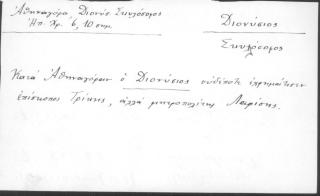 Ἀθηναγόρα, Διονύσ. Σκυλόσοφος
Ἠπ. Χρ. 6, 10 σημ.
Διονύσιος
Σκυλόσοφος
Κατὰ Ἀθηναγόραν ὁ Διονύσιος οὐδέποτε ἐχρημάτισεν
ἐπίσκοπος Τρίκκης, ἀλλὰ μητροπολίτης Λαρίσης.